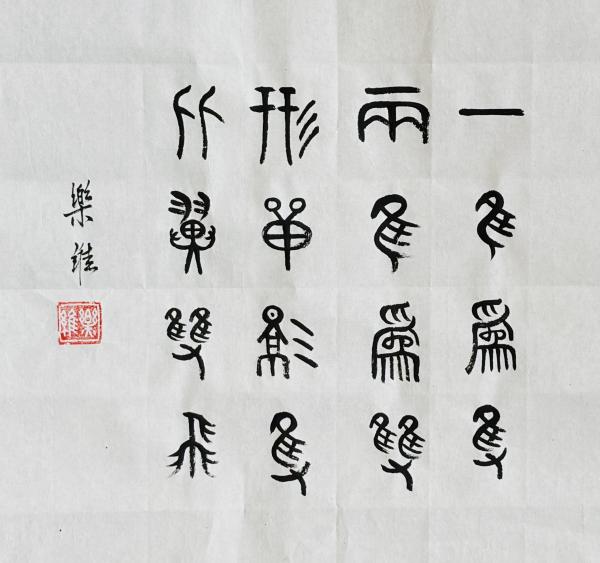 一隹爲隻
兩隹爲雙
形單影隻
比翼雙飛
樂維
樂維